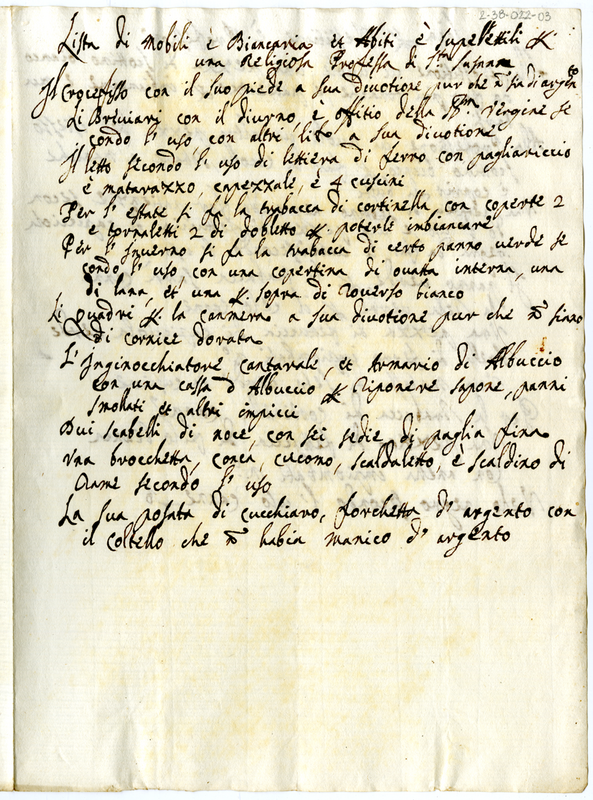 2-38-022-03
Lista di Mobili è Biancaria et Abiti è supellettili p.
una Religiosa Professa di S.ta Susanna
Il Crocefisso con il suo piede a sua divotione pur che ñ sia di argen.to
Li Breviari con il diurno, è offitio della SS.ma Vergine se
condo l'uso con altri a sua divotione
Il letto secondo l'uso di lettiera di ferro con pagliariccio
è matarazzo, capezzale, è 4 cuscini
Per l'estate si fa la trabacca di cortinella con coperte 2
e tornaletti 2 di dobletto p. poterle imbiancare
Per l'Inverno si fa la trabacca di certo panno verde se
condo l'uso con una copertina di ouata interna, una
di lana, et una p. sopra di roverso bianco
Li quadri p. la cammera a sua divotione pur che ñ siano
di cornice dorata
L'Inginocchiatore, cantarale, et Armario di Albuccio
con una cassa d Albuccio p. riponere sapone, panni
smollati et altri impicci
Dui scabelli di noce, con sei sedie di paglia fina
Una brocchetta, conca, cucomo, scaldaletto, è scaldino di
rame secondo l'uso
La sua posata di cucchiaro, forchetta d'argento con
il coltello che ñ habia manico d'argento